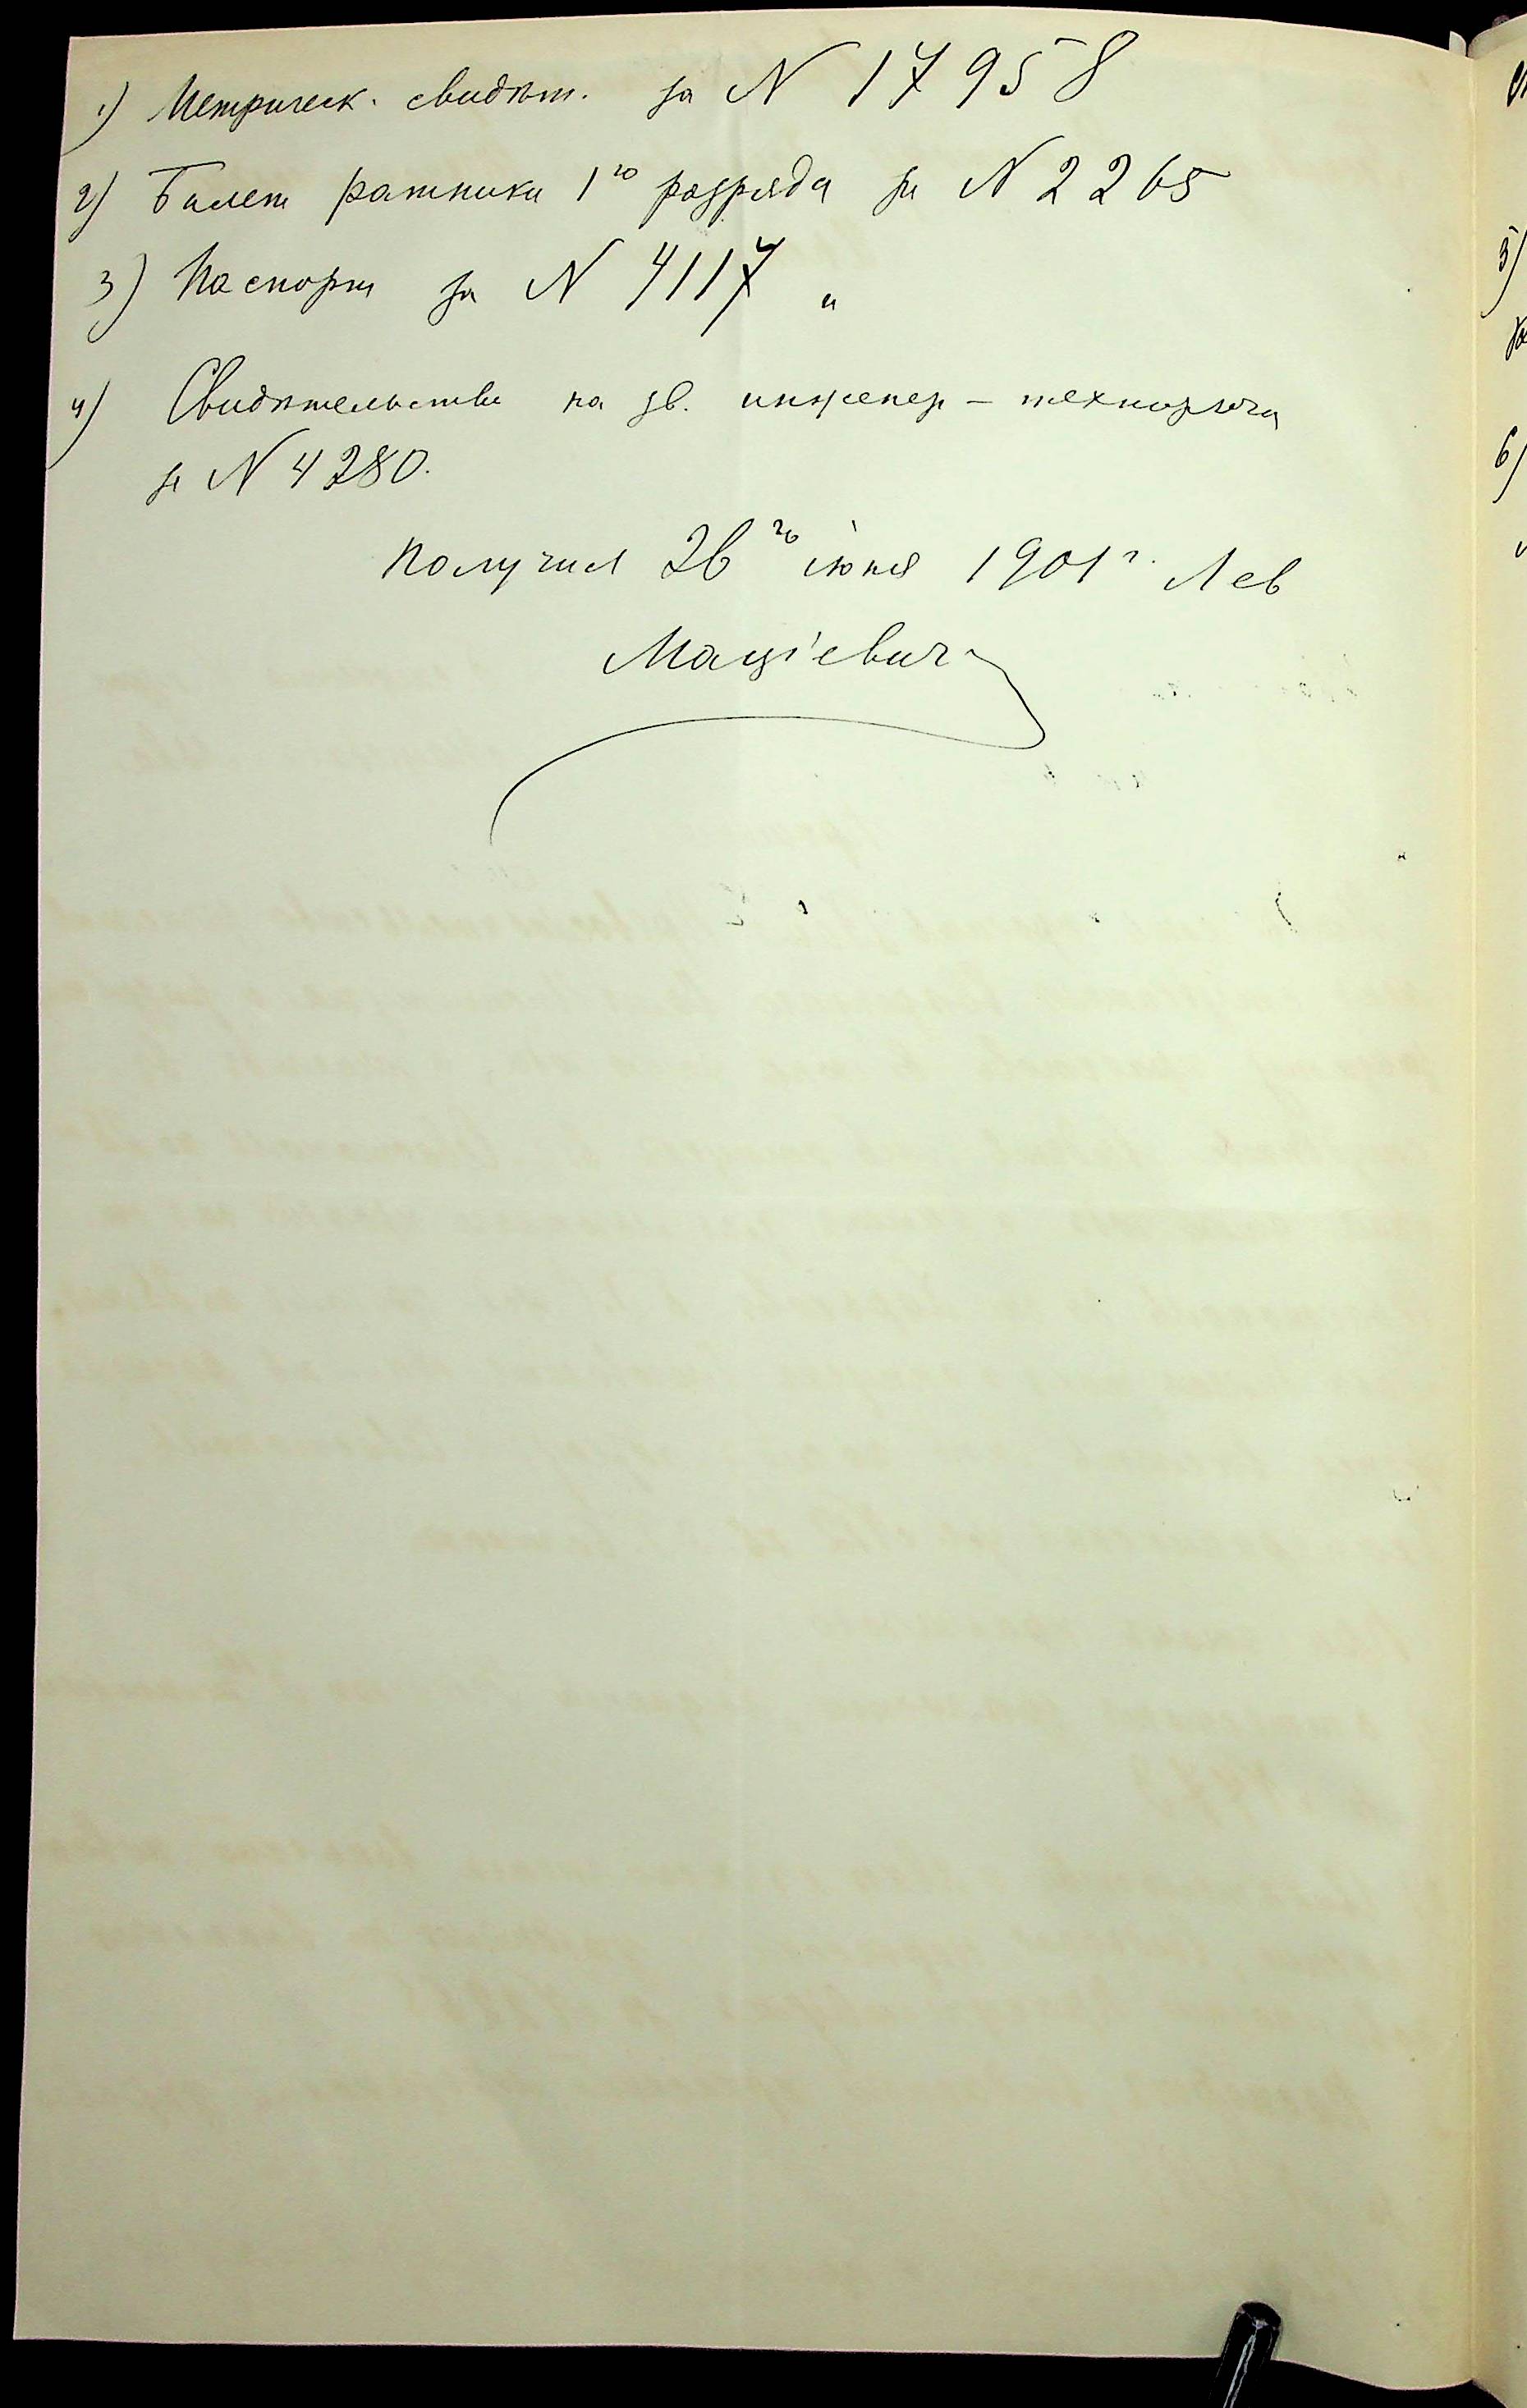 1) Метрическ. свидѣт. за N 17958
2) Билет ратника 1го разряда за N 2265
3) Паспорт за N 4117 и
4) Свидѣтельство на зв. инженер-технолога
за N 4280.
Получил 26го июня 1901 г. Лев
Мацiевич
5)
6)